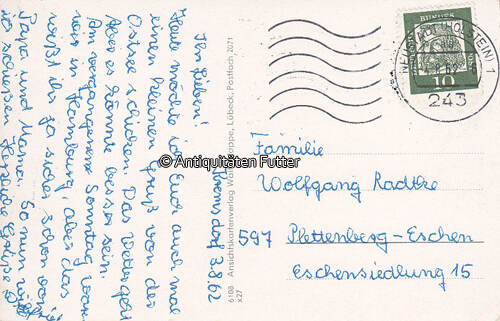 Thomsdorf 3.8.62
Ihr Lieben!
Heute möchte ich Euch auch mal
einen kleinen Gruß von der
Ostsee schicken. Das Wetter geht
Aber es könnte besser sein.
Am vergangenen Sonntag war
war in Hamburg, aber das
wißt ihr ja sicher schon von
Papa und Mama. So nun will
ich schließen Herzliche Grüße
6108 Ansichtskartenverlag Lübeck, Postfach 2071
x27
© Antiquitäten Futter
BUNDES
10
NEUSTADT (HOLSTEIN) 1
243
Familie
Wolfgang Radtke
597 Plettenberg-Eschen
Eschensiedlung 15